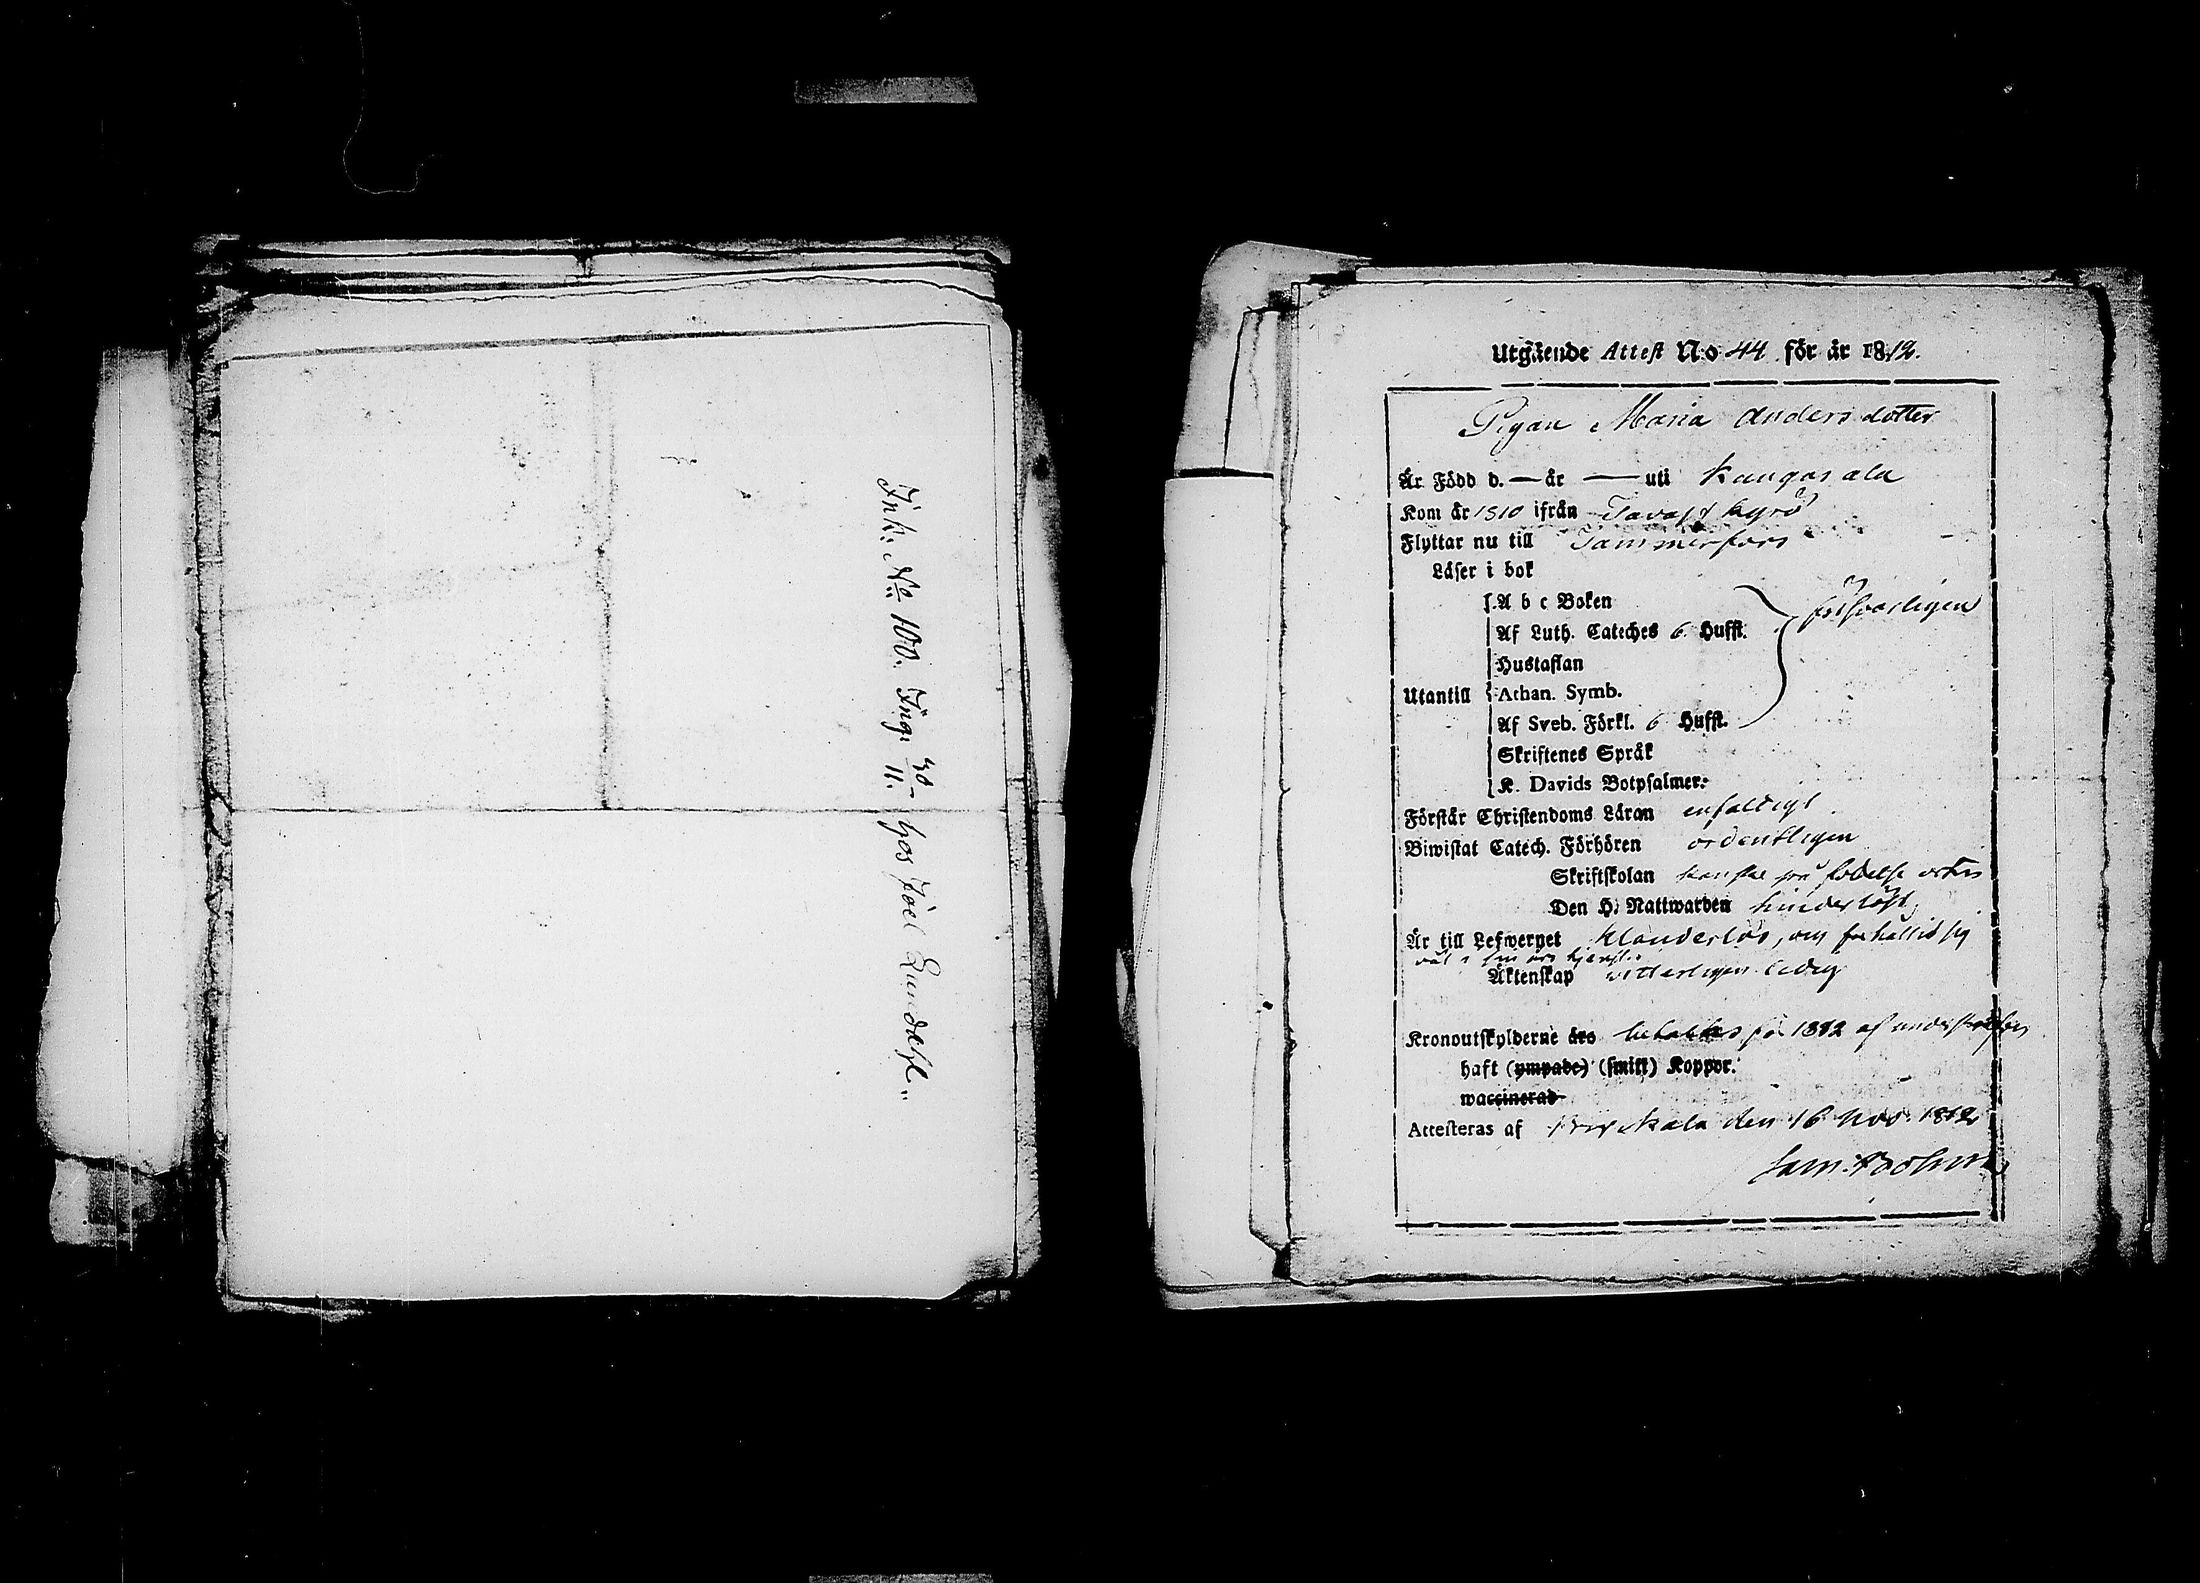 Ink. No 100. Ing. 30/11. hos Joel Lindqvist.
Utgående Attest No 44 för år 1812.
Pigan Maria Andersdotter
Är Född d. — år — uti Kangasala
Kom år 1810 ifrån Tavastkyrö
Flyttar nu till Tammerfors
Läser i bok
A b c Boken
försvarligen
Af Luth. Cateches 6 Hufst.
Hustaflan
Utantill Athan. Symb.
Af Sveb. Förkl. 6 Hufst.
Skriftenes Språk
K. Davids Botpsalmer.
Förstår Christendoms Läran enfaldigt
Biwistat Catech. Förhören ordentligen
Skriftskolan kanske på födelse orten
Den H. Nattwarden hinderlöst
Är till Lefwernet klanderlös, och förhållit sig
väl i sin års tjenst
Äktenskap witterligen ledig
Kronoutskylderne äro betaltes för 1812 af
haft (ympade) (smitt) Koppor.
waccinerad
Attesteras af Birkkala den 16 Nov. 1812
Sam.